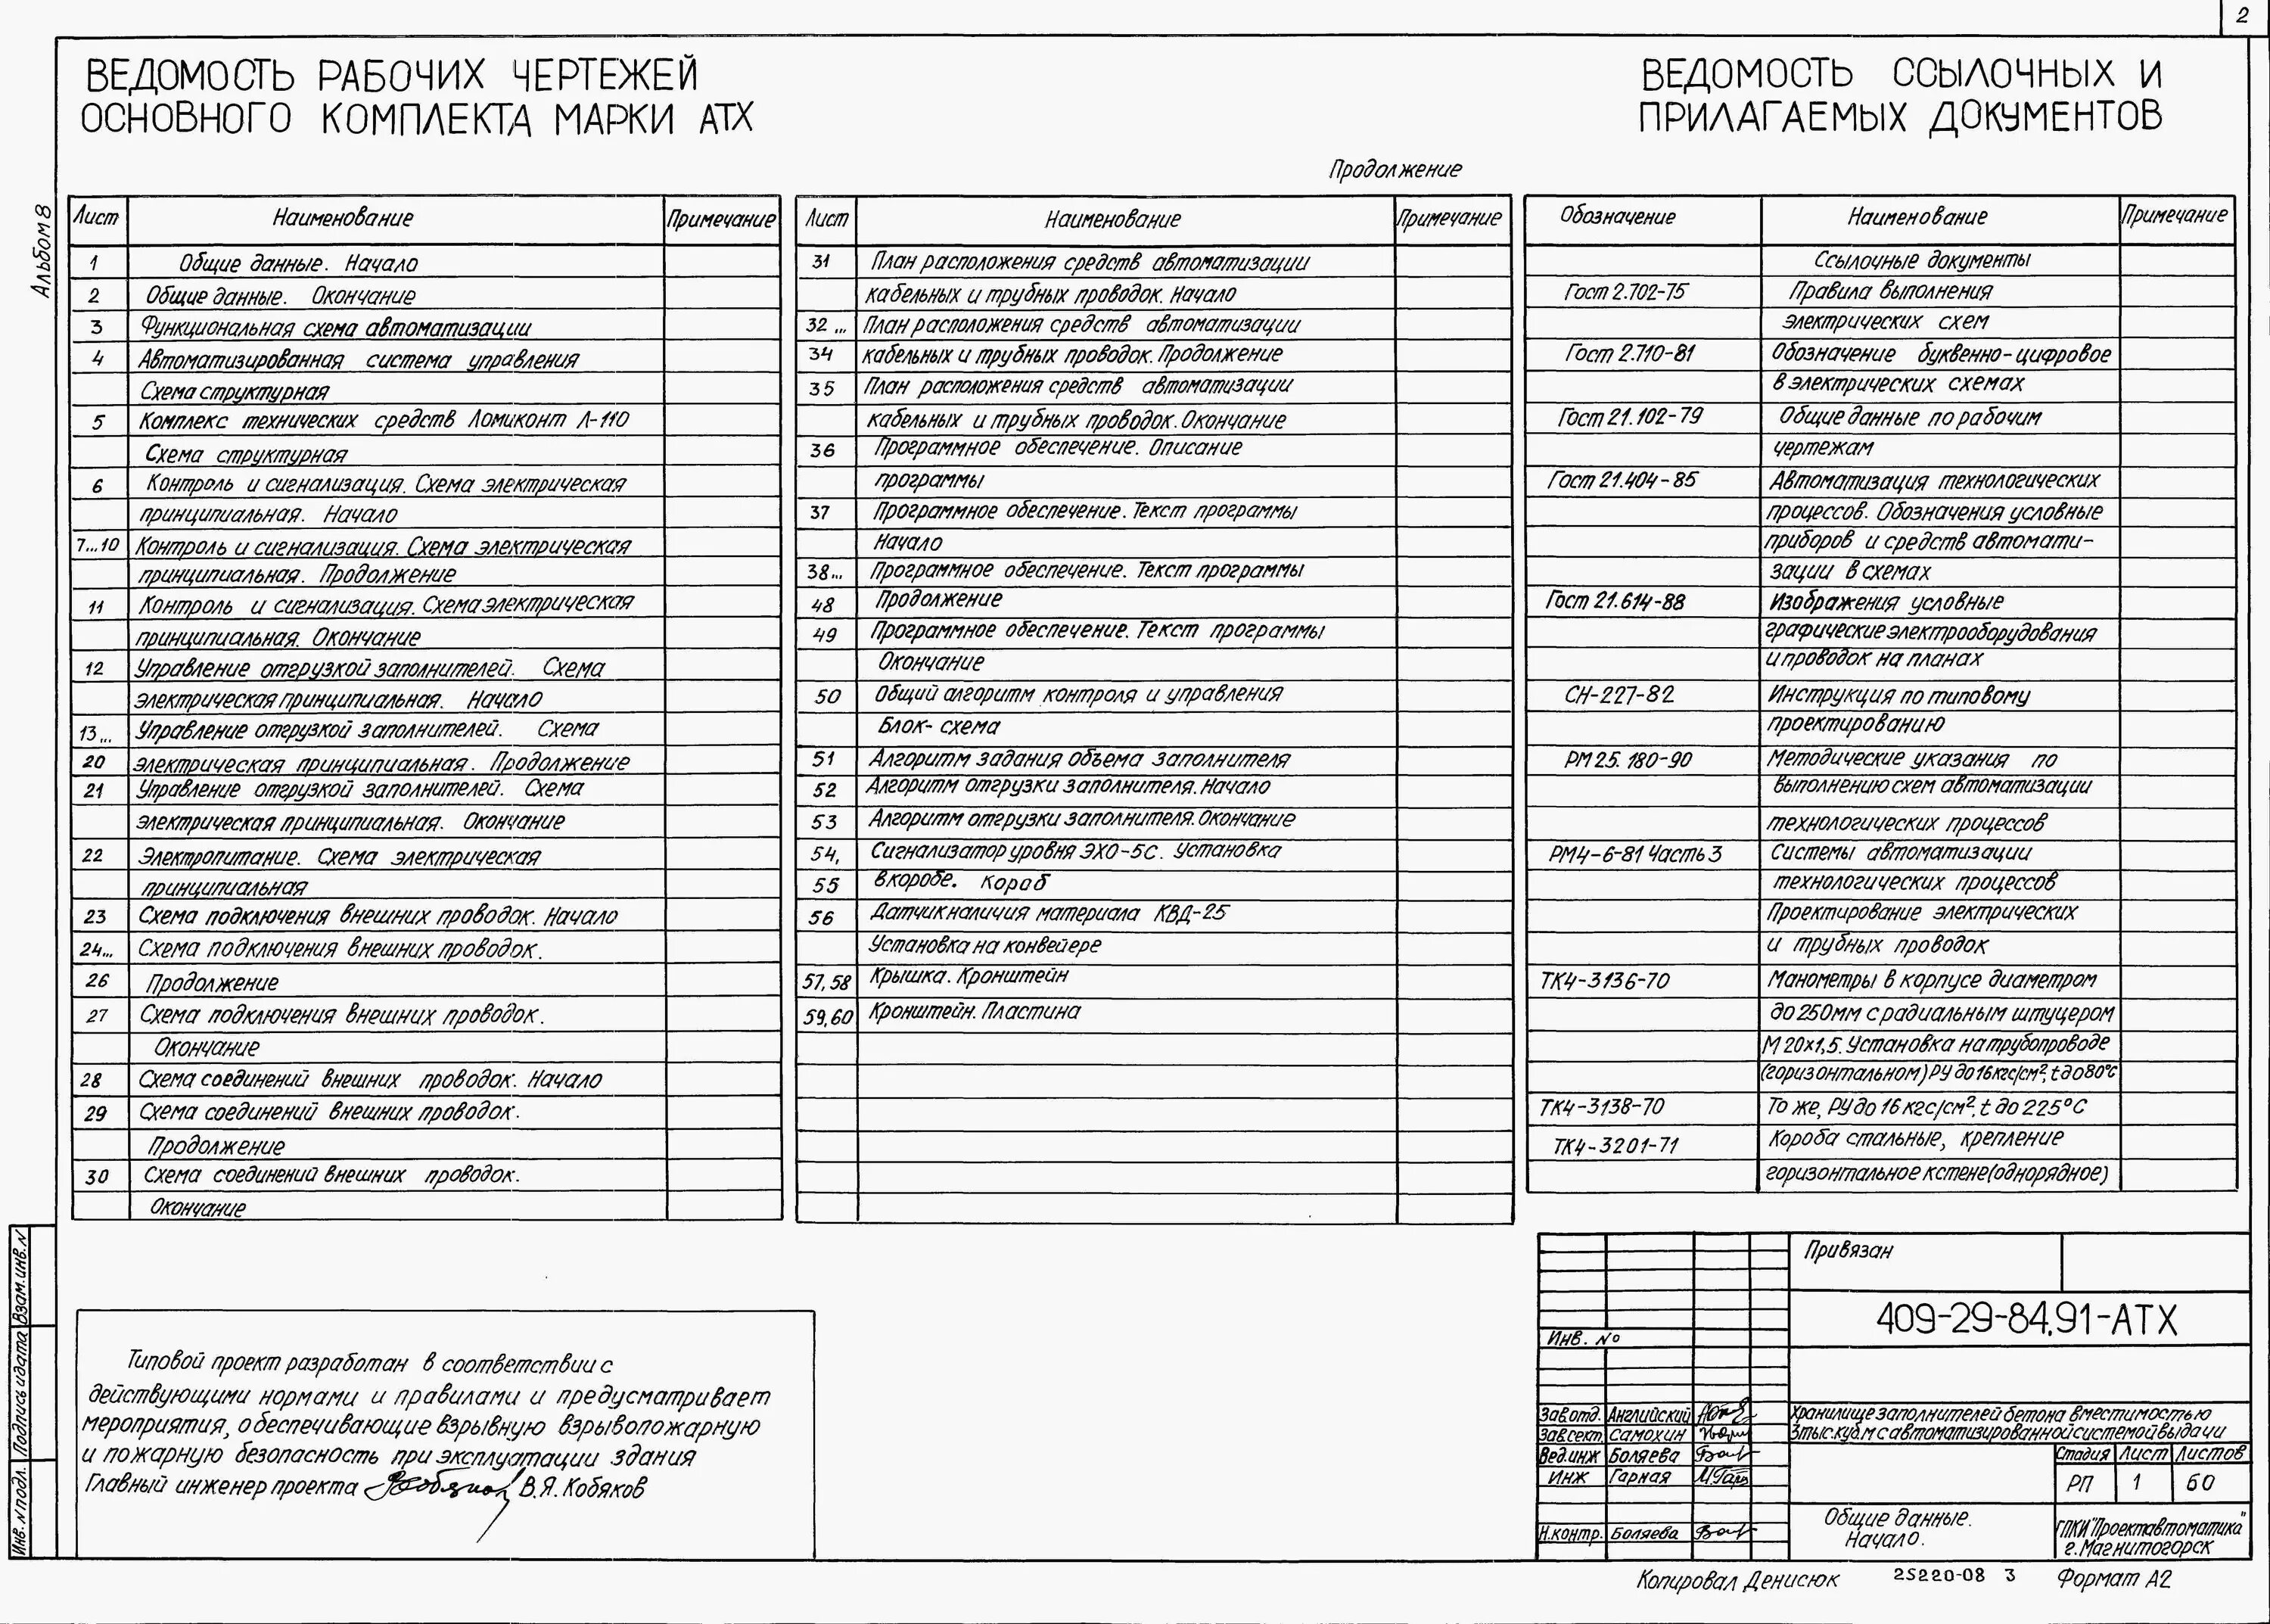 2
ВЕДОМОСТЬ РАБОЧИХ ЧЕРТЕЖЕЙ
ОСНОВНОГО КОМПЛЕКТА МАРКИ АТХ
ВЕДОМОСТЬ ССЫЛОЧНЫХ И
ПРИЛАГАЕМЫХ ДОКУМЕНТОВ
Продолжение
Альбом 8
Лист Наименование Примечание
1 Общие данные. Начало
2 Общие данные. Окончание
3 Функциональная схема автоматизации
4 Автоматизированная система управления
Схема структурная
5 Комплекс технических средств Ломиконт Л-110
Схема структурная
6 Контроль и сигнализация. Схема электрическая
принципиальная. Начало
7...10 Контроль и сигнализация. Схема электрическая
принципиальная. Продолжение
11 Контроль и сигнализация. Схема электрическая
принципиальная. Окончание
12 Управление отгрузкой заполнителей. Схема
электрическая принципиальная. Начало
13... Управление отгрузкой заполнителей. Схема
20 электрическая принципиальная. Продолжение
21 Управление отгрузкой заполнителей. Схема
электрическая принципиальная. Окончание
22 Электропитание. Схема электрическая
принципиальная
23 Схема подключения внешних проводок. Начало
24... Схема подключения внешних проводок.
26 Продолжение
27 Схема подключения внешних проводок.
Окончание
28 Схема соединений внешних проводок. Начало
29 Схема соединений внешних проводок.
Продолжение
30 Схема соединений внешних проводок.
Окончание
Лист Наименование Примечание
31 План расположения средств автоматизации
кабельных и трубных проводок. Начало
32... План расположения средств автоматизации
34 кабельных и трубных проводок. Продолжение
35 План расположения средств автоматизации
кабельных и трубных проводок. Окончание
36 Программное обеспечение. Описание
программы
37 Программное обеспечение. Текст программы
Начало
38... Программное обеспечение. Текст программы
48 Продолжение
49 Программное обеспечение. Текст программы
Окончание
50 Общий алгоритм контроля и управления
Блок-схема
51 Алгоритм задания объема заполнителя
52 Алгоритм отгрузки заполнителя. Начало
53 Алгоритм отгрузки заполнителя. Окончание
54, Сигнализатор уровня ЭХО-5С. Установка
55 в коробе. Короб
56 Датчик наличия материала КВД-25
Установка на конвейере
57, 58 Крышка. Кронштейн
59, 60 Кронштейн. Пластина
Обозначение Наименование Примечание
Ссылочные документы
Гост 2.702-75 Правила выполнения
электрических схем
Гост 2.710-81 Обозначение буквенно-цифровое
в электрических схемах
Гост 21.102-79 Общие данные по рабочим
чертежам
Гост 21.404-85 Автоматизация технологических
процессов. Обозначения условные
приборов и средств автомати-
зации в схемах
Гост 21.614-88 Изображения условные
графические электрооборудования
и проводок на планах
СН-227-82 Инструкция по типовому
проектированию
РМ 25.180-90 Методические указания по
выполнению схем автоматизации
технологических процессов
РМ4-6-81 Часть 3 Системы автоматизации
технологических процессов
Проектирование электрических
и трубных проводок
ТК4-3136-70 Манометры в корпусе диаметром
до 250мм с радиальным штуцером
М 20×1,5. Установка на трубопроводе
(горизонтальном) РУ до 16 кгс/см², t до 80°С
ТК4-3138-70 То же, РУ до 16 кгс/см², t до 225°С
ТК4-3201-71 Короба стальные, крепление
горизонтальное к стене (однорядное)
Типовой проект разработан в соответствии с
действующими нормами и правилами и предусматривает
мероприятия, обеспечивающие взрывную взрывопожарную
и пожарную безопасность при эксплуатации здания
Главный инженер проекта В.Я. Кобяков
Инв. N подл. Подпись и дата Взам. инв. N
Привязан
Инв. №
409-29-84.91-АТХ
Зав.отд. Английский
Зав.сект. Самохин
Вед.инж Боляева
Инж Гарная
Н.контр. Боляева
Хранилище заполнителей бетона вместимостью
3тыс.куб.м с автоматизированной системой выдачи
Стадия Лист Листов
РП 1 60
Общие данные.
Начало.
ГПКИ "Проектавтоматика"
г. Магнитогорск
Копировал Денисюк 25220-08 3 Формат А2